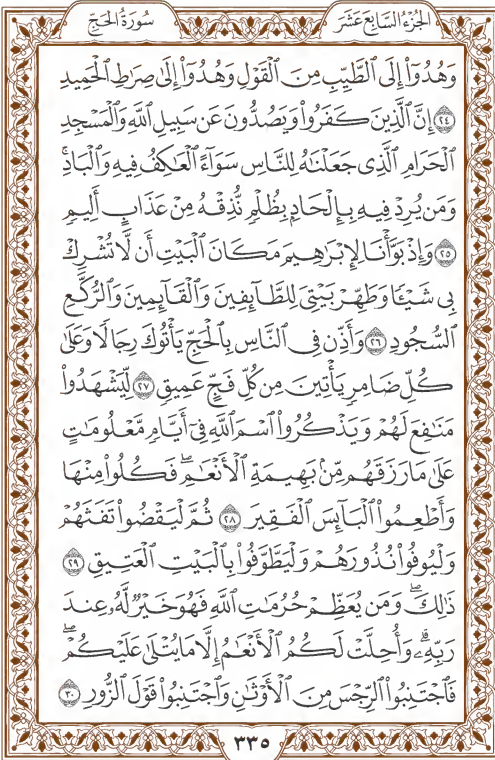 الجُزْءُ السَّابِعَ عَشَرَ سُورَةُ الحَجِّ
وَهُدُوٓاْ إِلَى ٱلطَّيِّبِ مِنَ ٱلۡقَوۡلِ وَهُدُوٓاْ إِلَىٰ صِرَٰطِ ٱلۡحَمِيدِ
٢٤ إِنَّ ٱلَّذِينَ كَفَرُواْ وَيَصُدُّونَ عَن سَبِيلِ ٱللَّهِ وَٱلۡمَسۡجِدِ
ٱلۡحَرَامِ ٱلَّذِي جَعَلۡنَٰهُ لِلنَّاسِ سَوَآءً ٱلۡعَٰكِفُ فِيهِ وَٱلۡبَادِۚ
وَمَن يُرِدۡ فِيهِ بِإِلۡحَادِۭ بِظُلۡمٖ نُّذِقۡهُ مِنۡ عَذَابٍ أَلِيمٖ
٢٥ وَإِذۡ بَوَّأۡنَا لِإِبۡرَٰهِيمَ مَكَانَ ٱلۡبَيۡتِ أَن لَّا تُشۡرِكۡ
بِي شَيۡـٔٗا وَطَهِّرۡ بَيۡتِيَ لِلطَّآئِفِينَ وَٱلۡقَآئِمِينَ وَٱلرُّكَّعِ
ٱلسُّجُودِ ٢٦ وَأَذِّن فِي ٱلنَّاسِ بِٱلۡحَجِّ يَأۡتُوكَ رِجَالٗا وَعَلَىٰ
كُلِّ ضَامِرٖ يَأۡتِينَ مِن كُلِّ فَجٍّ عَمِيقٖ ٢٧ لِّيَشۡهَدُواْ
مَنَٰفِعَ لَهُمۡ وَيَذۡكُرُواْ ٱسۡمَ ٱللَّهِ فِيٓ أَيَّامٖ مَّعۡلُومَٰتٍ
عَلَىٰ مَا رَزَقَهُم مِّنۢ بَهِيمَةِ ٱلۡأَنۡعَٰمِۖ فَكُلُواْ مِنۡهَا
وَأَطۡعِمُواْ ٱلۡبَآئِسَ ٱلۡفَقِيرَ ٢٨ ثُمَّ لۡيَقۡضُواْ تَفَثَهُمۡ
وَلۡيُوفُواْ نُذُورَهُمۡ وَلۡيَطَّوَّفُواْ بِٱلۡبَيۡتِ ٱلۡعَتِيقِ ٢٩
ذَٰلِكَۖ وَمَن يُعَظِّمۡ حُرُمَٰتِ ٱللَّهِ فَهُوَ خَيۡرٞ لَّهُۥ عِندَ
رَبِّهِۦۗ وَأُحِلَّتۡ لَكُمُ ٱلۡأَنۡعَٰمُ إِلَّا مَا يُتۡلَىٰ عَلَيۡكُمۡۖ
فَٱجۡتَنِبُواْ ٱلرِّجۡسَ مِنَ ٱلۡأَوۡثَٰنِ وَٱجۡتَنِبُواْ قَوۡلَ ٱلزُّورِ ٣٠
٣٣٥